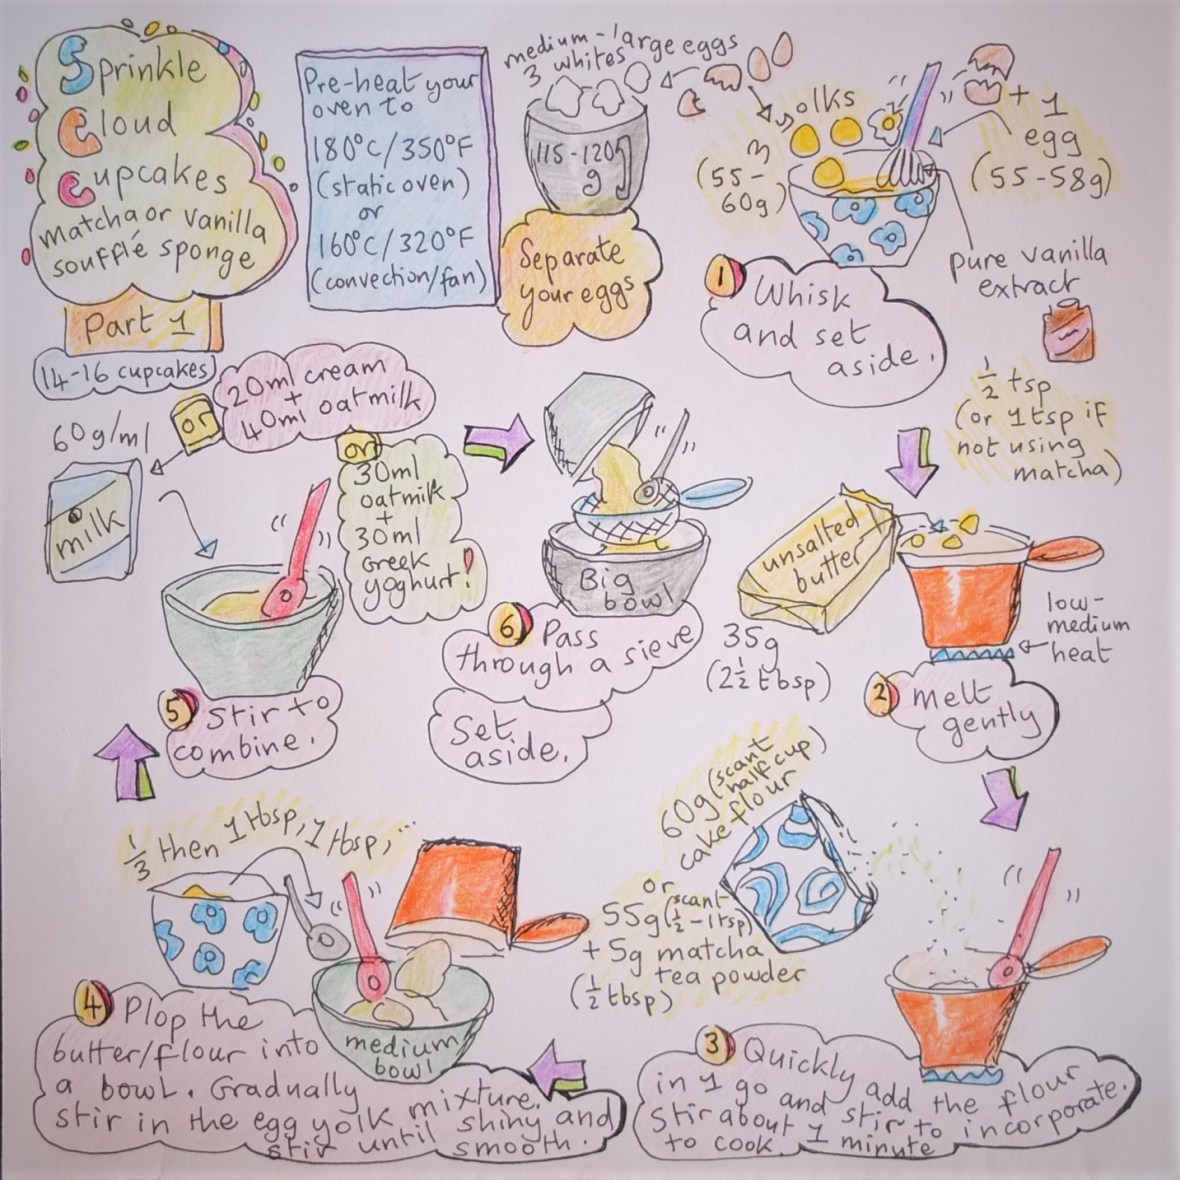 Sprinkle
Cloud
Cupcakes
matcha or vanilla
soufflé sponge
Part 1
14-16 cupcakes
Pre-heat your
oven to
180°C/350°F
(static oven)
or
160°C/320°F
(convection/fan)
medium-large eggs
3 whites
115-120g
g
Separate
your eggs
yolks
3
(55-
60g)
+ 1
egg
(55-58g)
pure vanilla
extract
1 Whisk
and set
aside.
1/2 tsp
(or 1 tsp if
not using
matcha)
unsalted
butter
35g
(2 1/2 tbsp)
low-
medium
heat
2 Melt
gently
60g (scant
half cup
cake flour)
or
55g (scant
1/2 - 1 tsp)
+ 5g matcha
tea powder
(1/2 tbsp)
3 Quickly add the flour
in 1 go and stir to incorporate.
Stir about 1 minute
to cook.
1/3 then 1 tbsp, 1 tbsp,
medium
bowl
4 Plop the
butter/flour into
a bowl. Gradually
stir in the egg yolk mixture.
stir until shiny and
smooth.
60g/ml
or
20ml cream
+
40ml oatmilk
or
30ml
oatmilk
+
30ml
Greek
yoghurt!
milk
5 Stir to
combine.
Big
bowl
6 Pass
through a sieve
Set
aside.